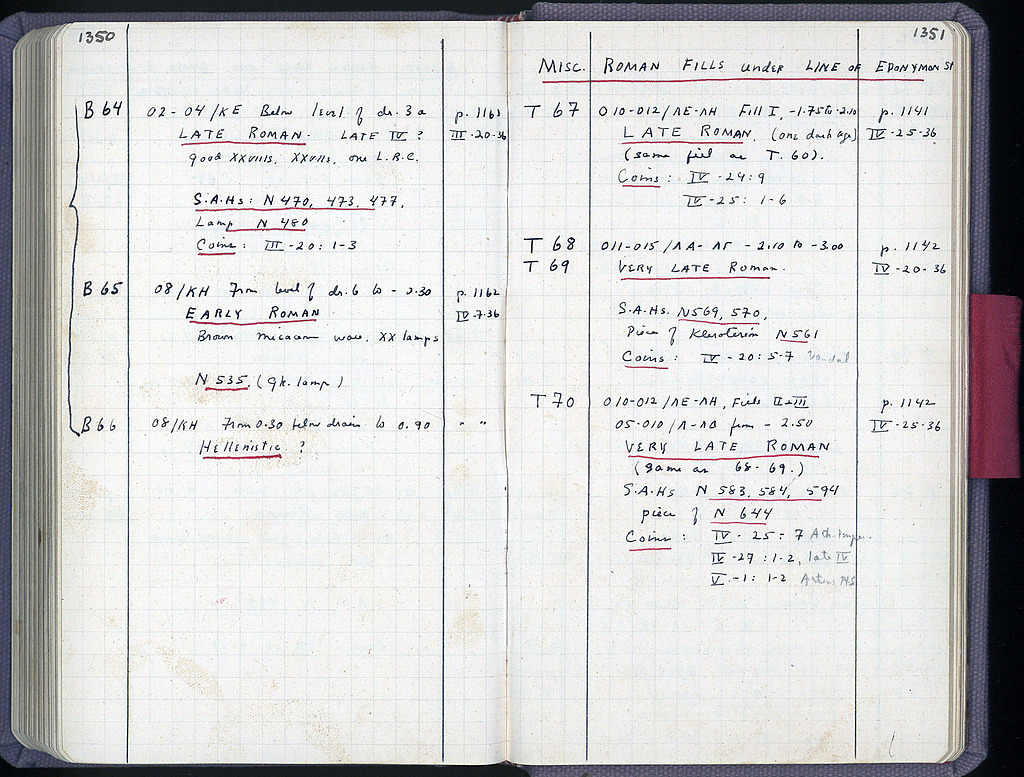 1350
B 64 02-04/KE Below level of dr. 3a p. 1161
LATE ROMAN. LATE IV ? III-20-36
good XXVIIIs, XXVIIs, one L.R.C.
S.A.Hs: N 470, 473, 477,
Lamp N 480
Coins: III-20: 1-3
B 65 08/KH From level of dr. 6 to -0.30 p. 1162
EARLY ROMAN IV-7-36
Brown ware, XX lamps
N 535, (gk. lamp)
B 66 08/KH From 0.30 below drain to 0.90 " "
Hellenistic ?
1351
MISC. ROMAN FILLS under LINE OF EPONYMON St
T 67 010-012/ΛE-ΛH Fill I, -1.75 to -2.10 p. 1141
LATE ROMAN, (one dark age) IV-25-36
(same fill as T. 60).
Coins: IV-24: 9
IV-25: 1-6
T 68 011-015/ΛA-ΛΓ -2.10 to -3.00 p. 1142
T 69 VERY LATE Roman. IV-20-36
S.A.Hs. N569, 570,
Piece of Kleroterion N 561
Coins: IV-20: 5-7 Vandal
T 70 010-012/ΛE-ΛH, Fills II & III p. 1142
05-010/Λ-ΛΘ from -2.50 IV-25-36
VERY LATE ROMAN
(same as 68-69.)
S.A.Hs N 583, 584, 594
piece of N 644
Coins: IV-25: 7 Ath. Imp.
IV-27: 1-2, late IV
V-1: 1-2